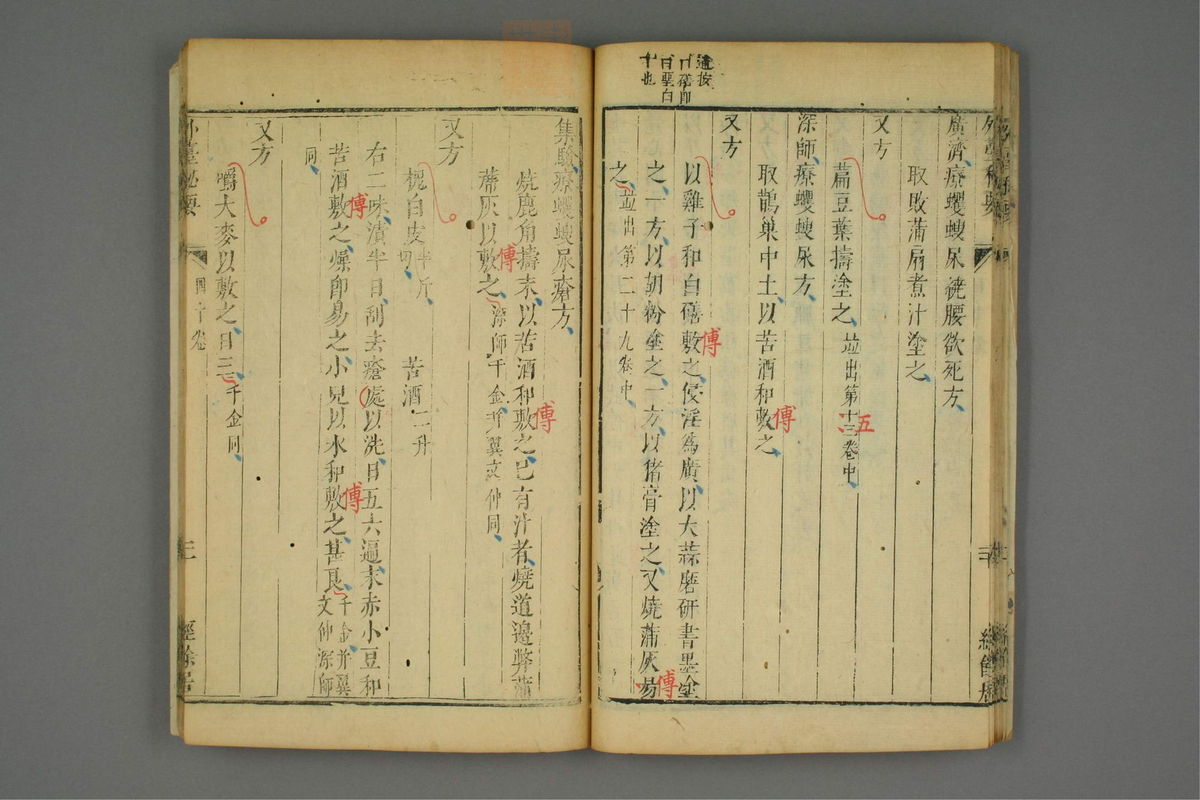 廣濟療蠼螋尿繞腰欲死方
取敗蒲扇煮汁塗之
又方
萹豆葉擣塗之並出第十三卷中
五
深師療蠼螋尿方
取鵲巢中土以苦酒和敷之
傅
又方
以雞子和白礬敷之侵淫為廣以大蒜磨研書墨塗
傅
之一方以胡粉塗之一方以猪膏塗之又燒蒲灰易
傅
之並出第二十九卷中
集驗療蠼螋尿瘡方
燒鹿角擣末以苦酒和敷之已有汁者燒道邊弊蒲
傅
蓆灰以敷之深師千金并翼文仲同
傅
又方
槐白皮半斤切 苦酒二升
右二味漬半日刮去瘡處以洗日五六遍末赤小豆和
苦酒敷之燥即易之小兒以水和敷之甚良千金并翼文仲深師
傅
傅
同
又方
嚼大麥以敷之日三千金同
外臺秘要
四十卷
三
經餘居